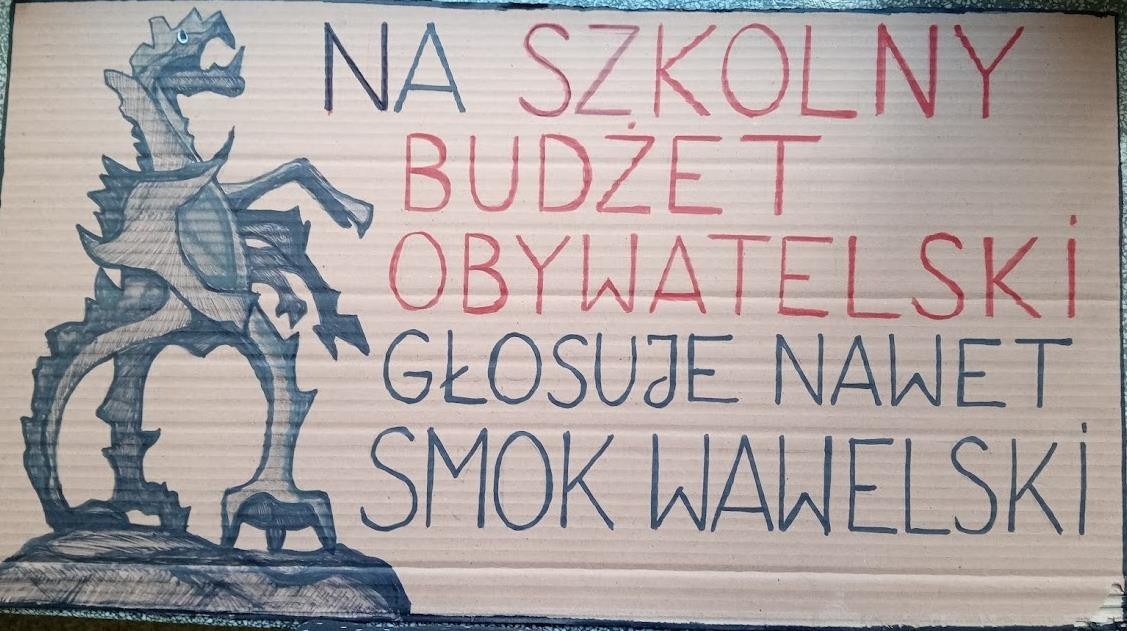 NA SZKOLNY
BUDŻET
OBYWATELSKI
GŁOSUJE NAWET
SMOK WAWELSKI